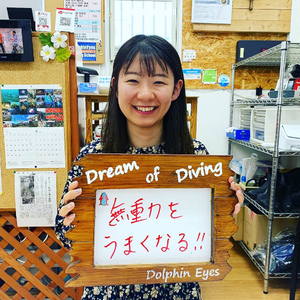 Dream of Diving
無重力を
うまくなる!!
Dolphin Eyes